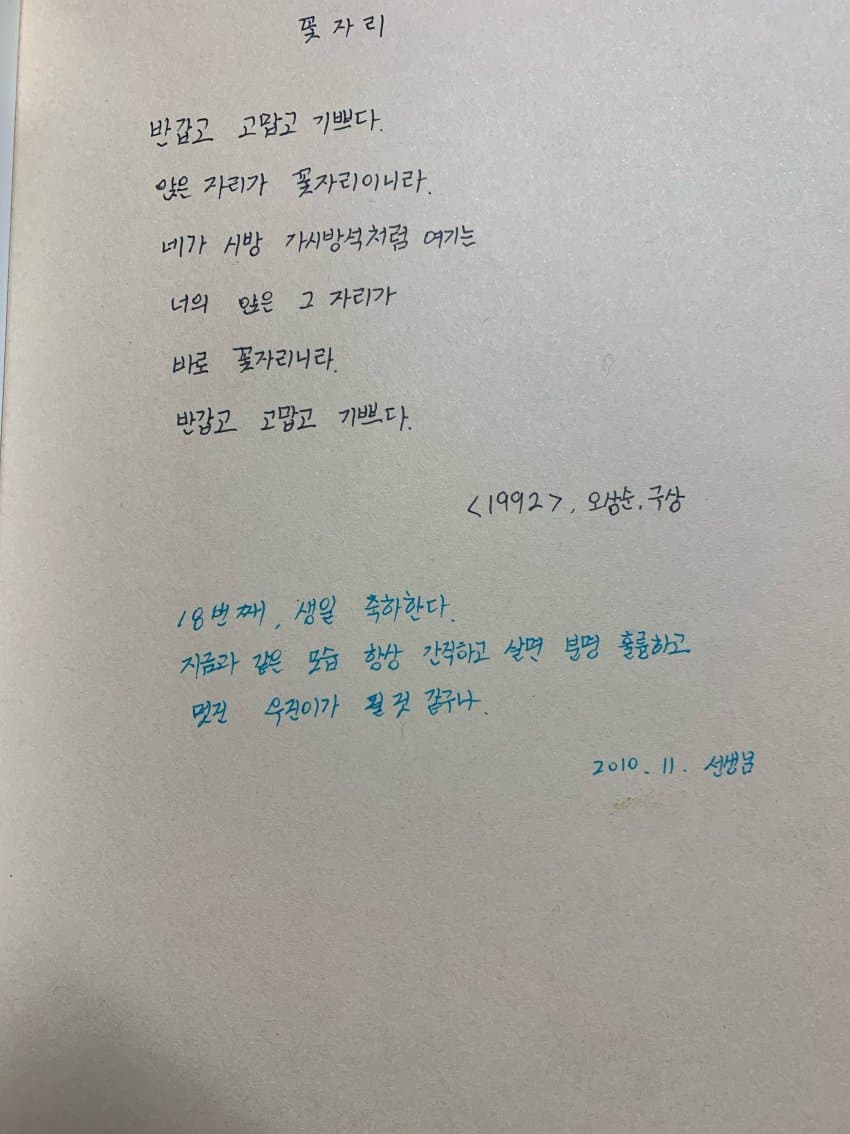 꽃자리
반갑고 고맙고 기쁘다.
앉은 자리가 꽃자리이니라.
네가 시방 가시방석처럼 여기는
너의 앉은 그 자리가
바로 꽃자리니라.
반갑고 고맙고 기쁘다.
<1992>, 오삼순, 구상
18번째, 생일 축하한다.
지금과 같은 모습 항상 간직하고 살면 분명 훌륭하고
멋진 우진이가 될 것 같구나.
2010. 11. 선생님